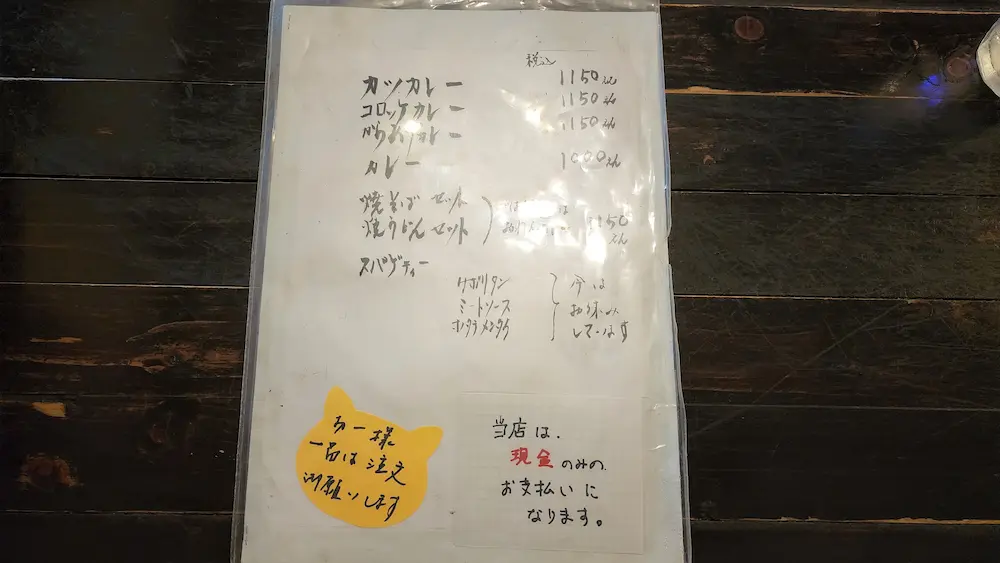 税込
カツカレー 1150えん
コロッケカレー 1150えん
カレー 1150えん
カレー 1000えん
焼そば セット
焼うどん セット 1150えん
スパゲティー
ナポリタン
ミートソース
今は
お休み
しています
お一様
一品は注文
御願いします
当店は、
現金のみの
お支払いに
なります。